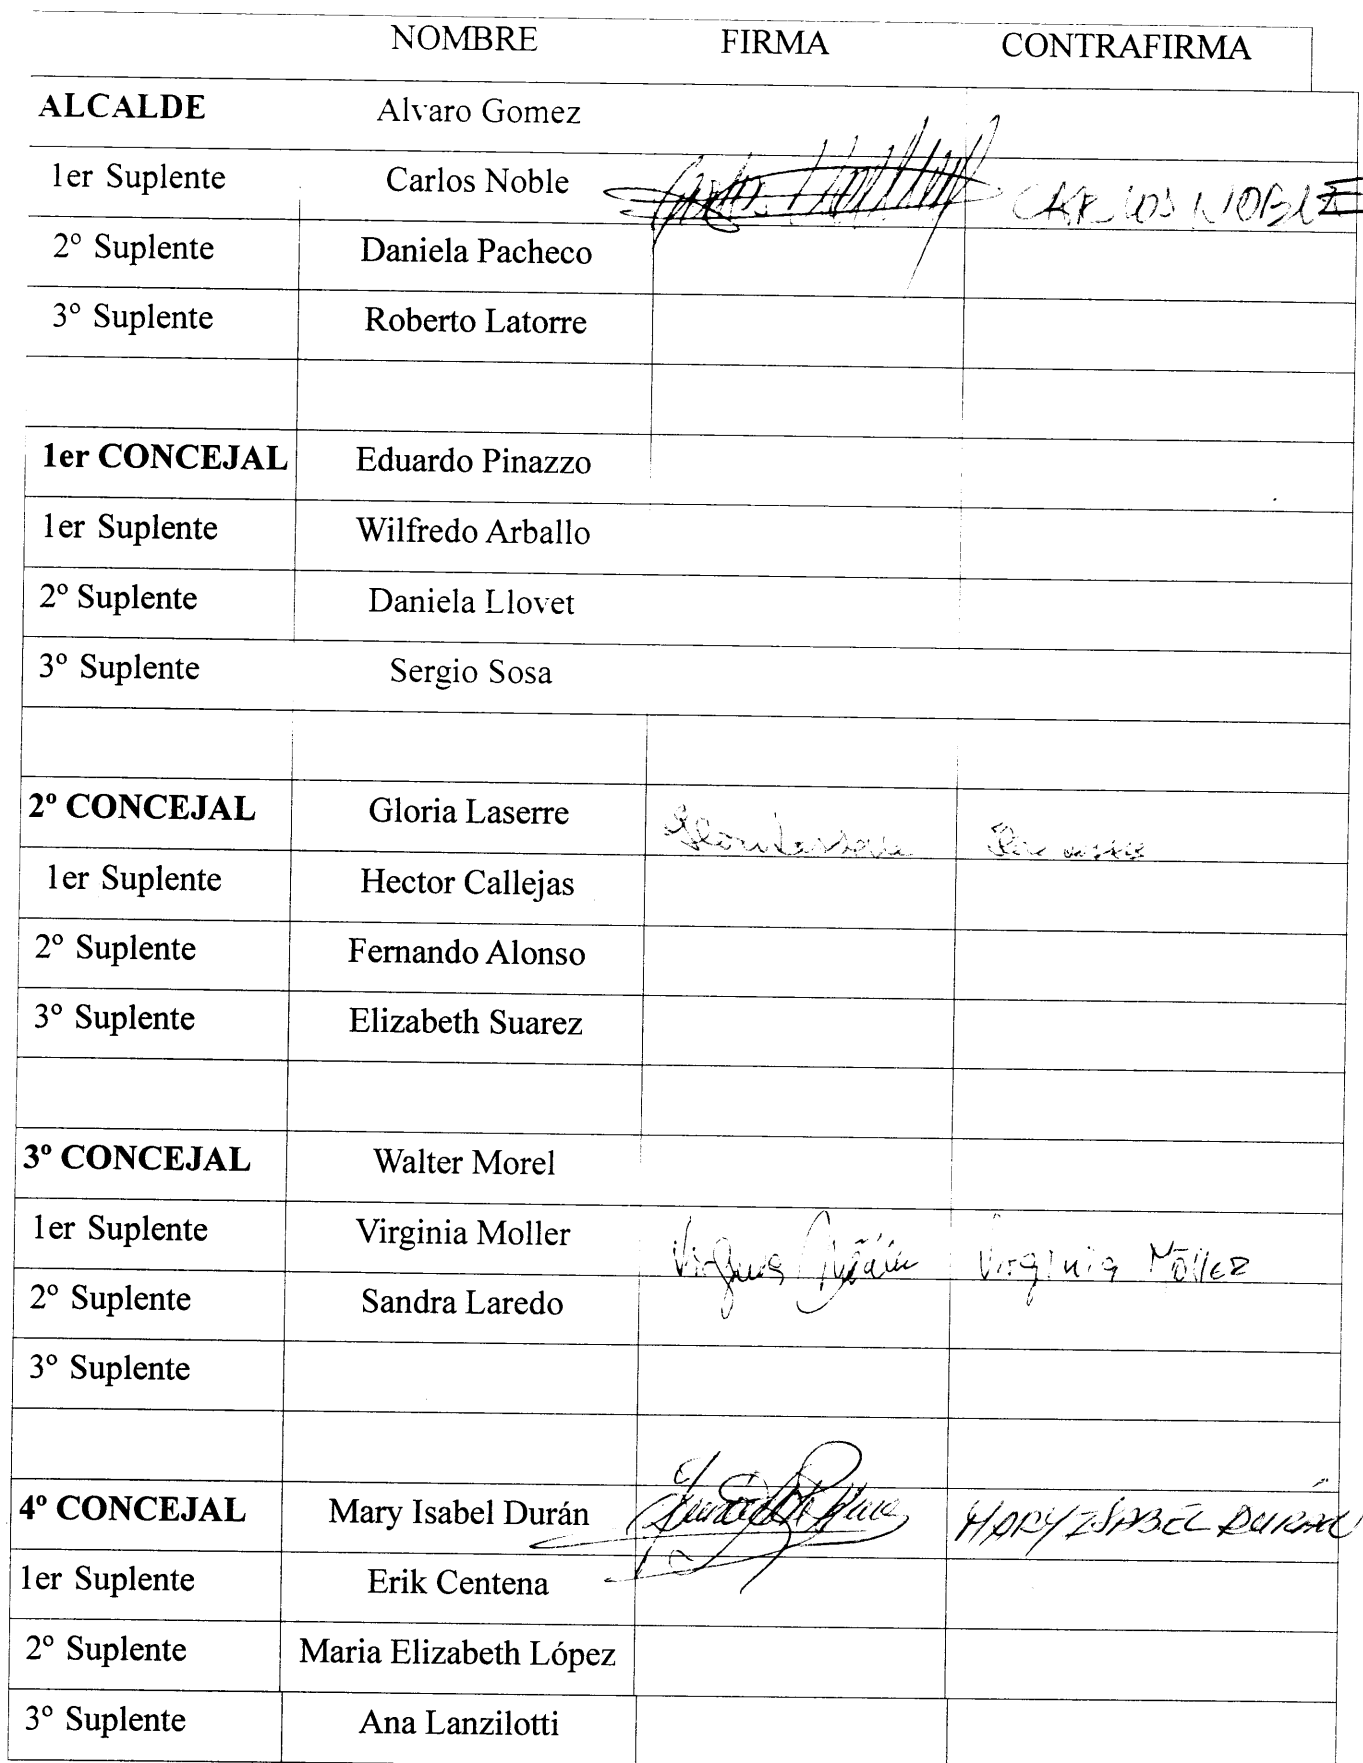 NOMBRE FIRMA CONTRAFIRMA
ALCALDE Alvaro Gomez
1er Suplente Carlos Noble CARLOS NOBLE
2º Suplente Daniela Pacheco
3º Suplente Roberto Latorre
1er CONCEJAL Eduardo Pinazzo
1er Suplente Wilfredo Arballo
2º Suplente Daniela Llovet
3º Suplente Sergio Sosa
2º CONCEJAL Gloria Laserre
1er Suplente Hector Callejas
2º Suplente Fernando Alonso
3º Suplente Elizabeth Suarez
3º CONCEJAL Walter Morel
1er Suplente Virginia Moller Virginia Möller
2º Suplente Sandra Laredo
3º Suplente
4º CONCEJAL Mary Isabel Durán MARY ISABEL DURÁN
1er Suplente Erik Centena
2º Suplente Maria Elizabeth López
3º Suplente Ana Lanzilotti